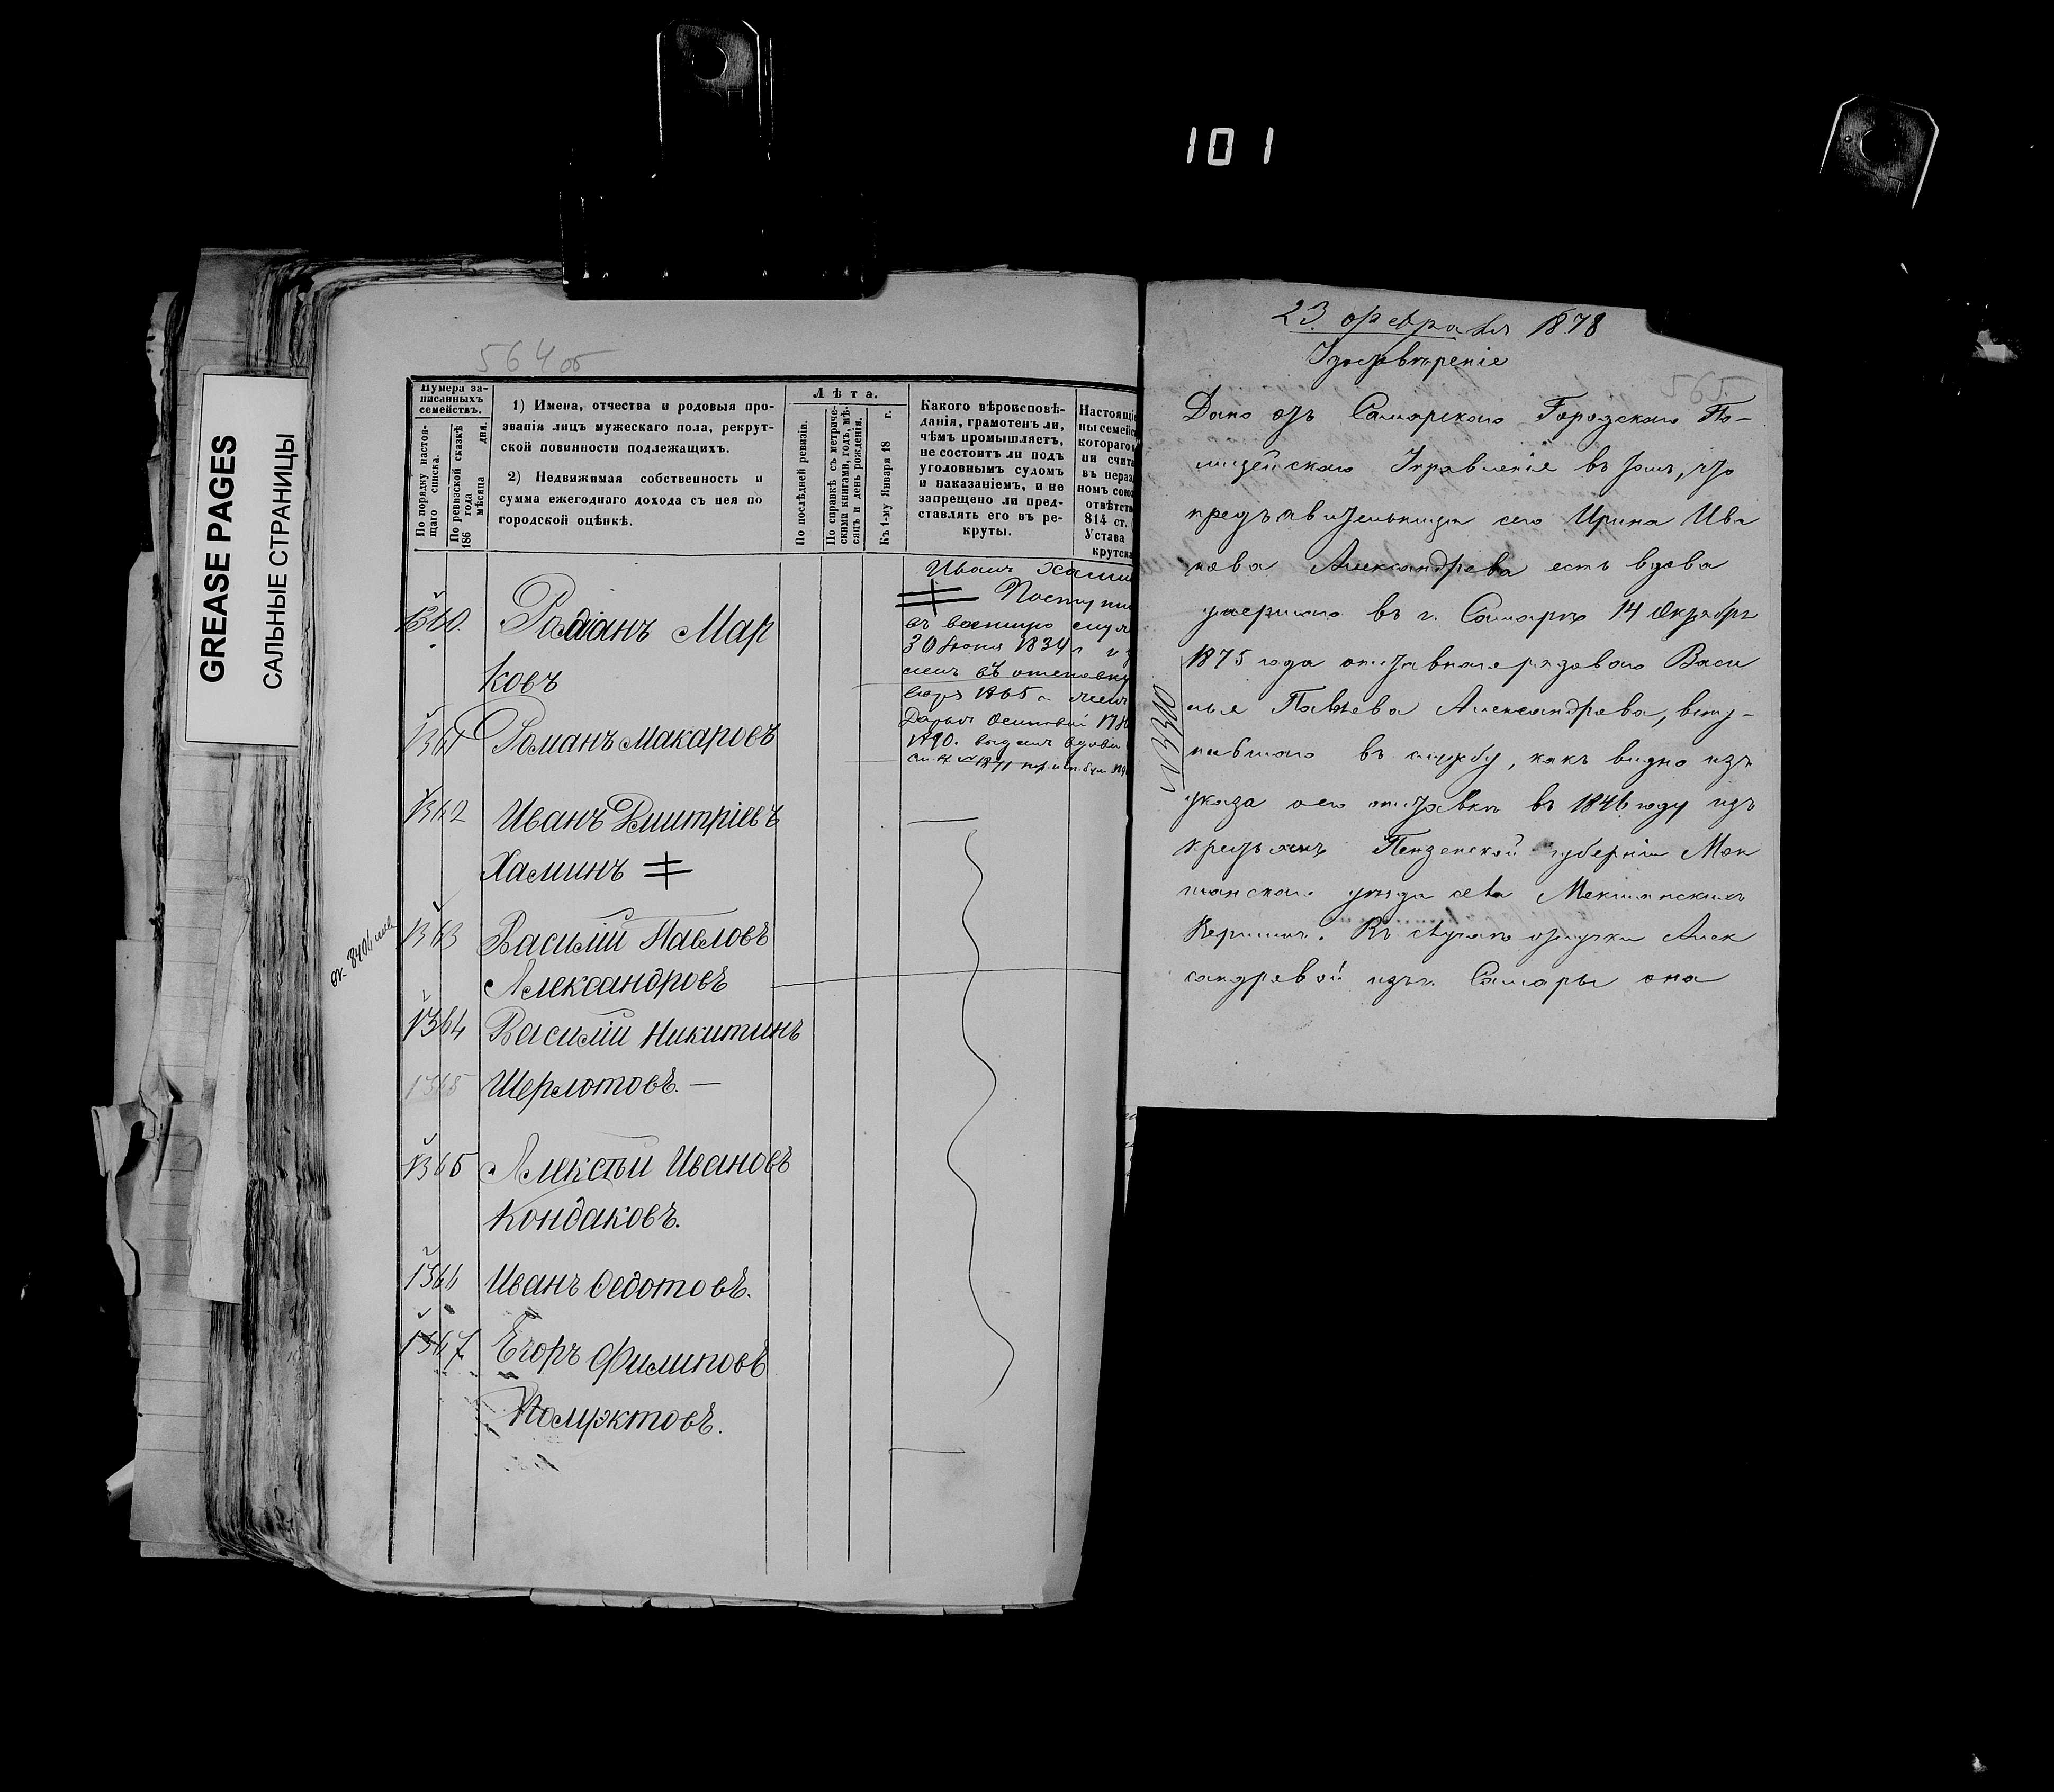 101
GREASE PAGES
САЛЬНЫЕ СТРАНИЦЫ
564 об
Нумера записанныхъ семействъ.
По порядку настоящаго списка.
По ревизской сказкѣ 186 года мѣсяца дня.
1) Имена, отчества и родовыя прозванія лицъ мужескаго пола, рекрутской повинности подлежащихъ.
2) Недвижимая собственность и сумма ежегоднаго дохода съ нея по городской оцѣнкѣ.
Лѣта.
По послѣдней ревизіи.
По справкѣ съ метрическими книгами, годъ, мѣсяцъ и день рожденія.
Къ 1-му Января 18 г.
Какого вѣроисповѣданія, грамотенъ ли, чѣмъ промышляетъ, не состоитъ ли подъ уголовнымъ судомъ и наказаніемъ, и не запрещено ли представлять его въ рекруты.
Настоящіе
ны семейс
котораго
ни счита
въ нераз
номъ союз
отвѣтств
814 ст.
Устава
крутска
Иванъ Хамин
Поступи
въ военную служ
30 Июня 1834 г
1865 г
Дарья Осиповой
1890. вдов
1360. Романъ Мар
ковъ
1361 Романъ Макаровъ
1362 Иванъ Дмитріевъ
Хаминъ
1363 Василій Павловъ
Александровъ
1364 Василій Никитинъ
1365 Шерлотовъ. —
1365 Алексѣй Ивановъ
Кондаковъ.
1366 Иванъ Ѳедотовъ.
1367. Егоръ Филиповъ
23 февраля 1878
565
Удостовѣреніе
Дано отъ Самарскаго Городскаго По-
лицейскаго Управленія въ томъ, что
предъявительница сего Ирина Ива
нова Александрова есть вдова
умершаго въ г. Самарѣ 14 Октября
1875 года отставного рядового Васи
лья Павлева Александрова, всту-
пившаго въ службу, какъ видно изъ
указа о его отставкѣ въ 1846 году изъ
крестьянъ Пензенской губерніи Мок
шанскаго уѣзда села Мокшанскихъ
Въ случаѣ отлучки Алек
сандровой изъ г. Самары она
№ 3310